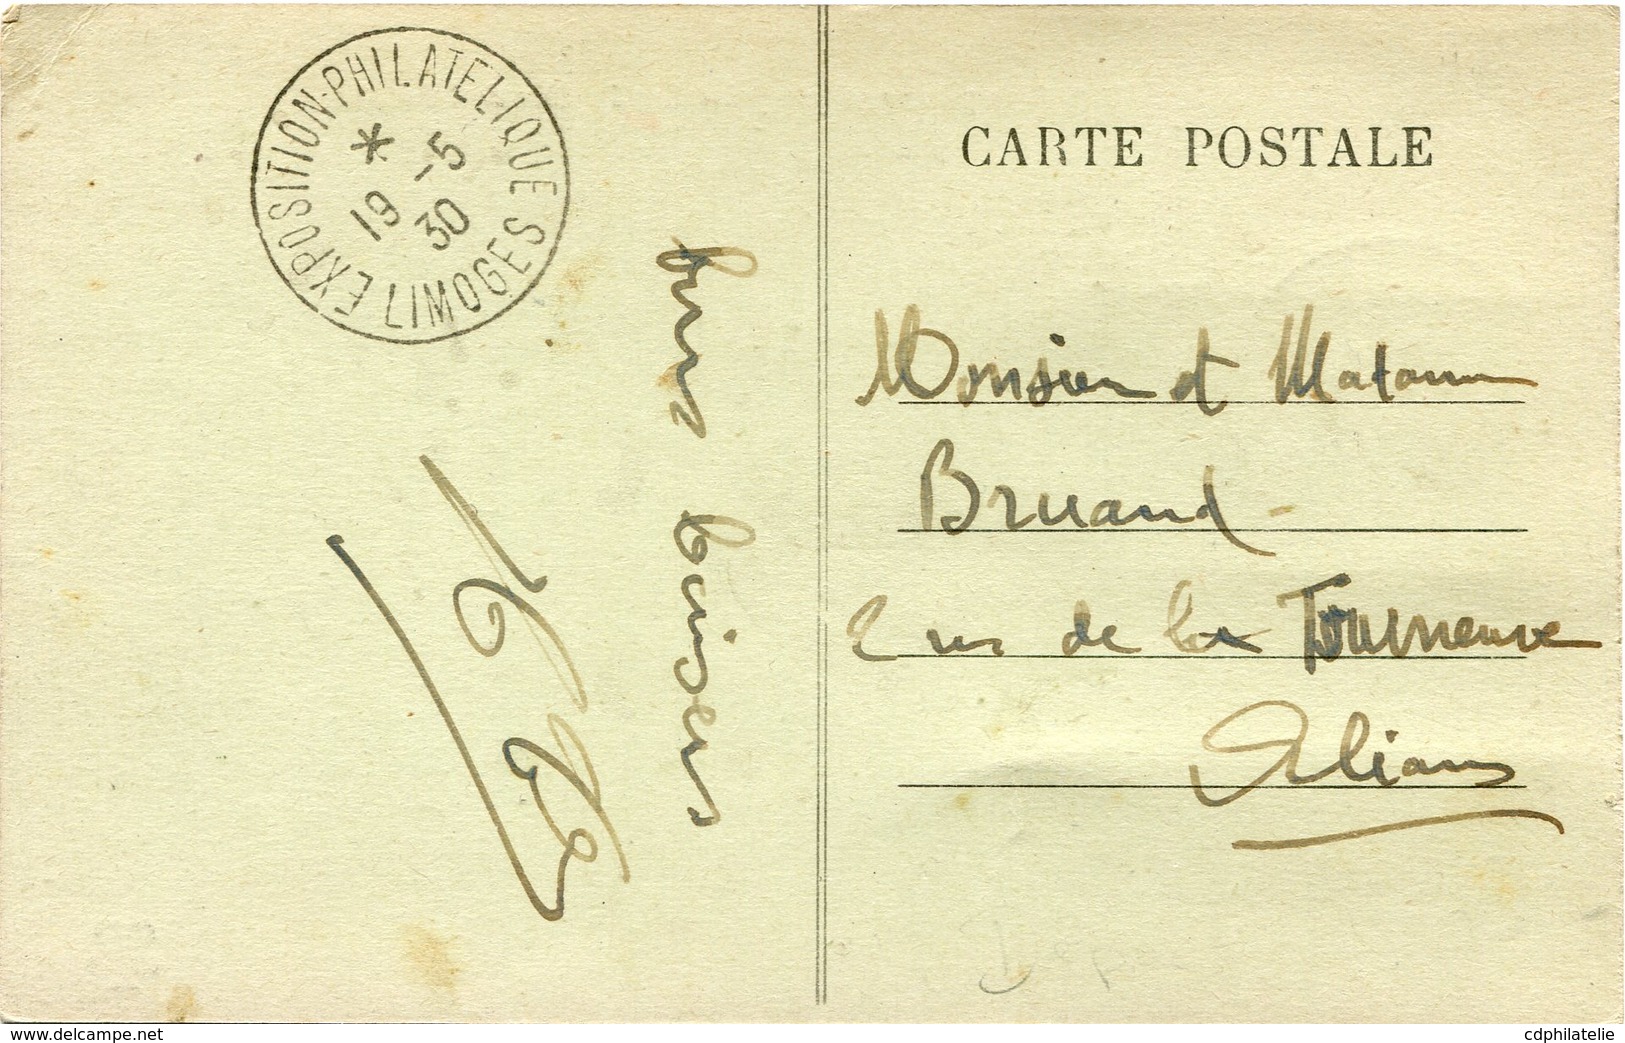 EXPOSITION-PHILATELIQUE
LIMOGES
*
19 -5
30
bons baisers
CARTE POSTALE
Monsieur et Madame
Bruand
2 rue de la Tourneuve
Orléans
www.delcampe.net
cdphilatelie